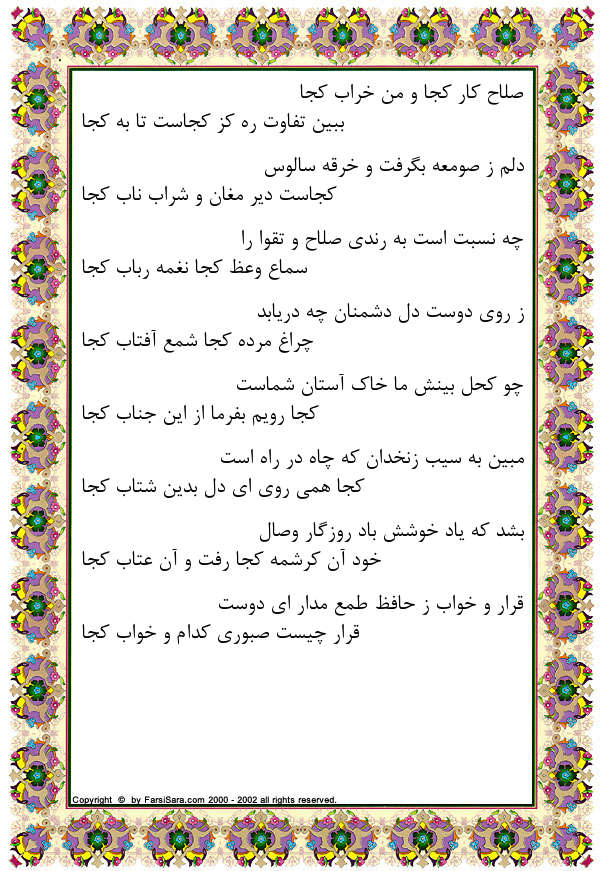 صلاح کار کجا و من خراب کجا
ببین تفاوت ره کز کجاست تا به کجا
دلم ز صومعه بگرفت و خرقه سالوس
کجاست دیر مغان و شراب ناب کجا
چه نسبت است به رندی صلاح و تقوا را
سماع وعظ کجا نغمه رباب کجا
ز روی دوست دل دشمنان چه دریابد
چراغ مرده کجا شمع آفتاب کجا
چو کحل بینش ما خاک آستان شماست
کجا رویم بفرما از این جناب کجا
مبین به سیب زنخدان که چاه در راه است
کجا همی روی ای دل بدین شتاب کجا
بشد که یاد خوشش باد روزگار وصال
خود آن کرشمه کجا رفت و آن عتاب کجا
قرار و خواب ز حافظ طمع مدار ای دوست
قرار چیست صبوری کدام و خواب کجا
Copyright © by FarsiSara.com 2000 - 2002 all rights reserved.